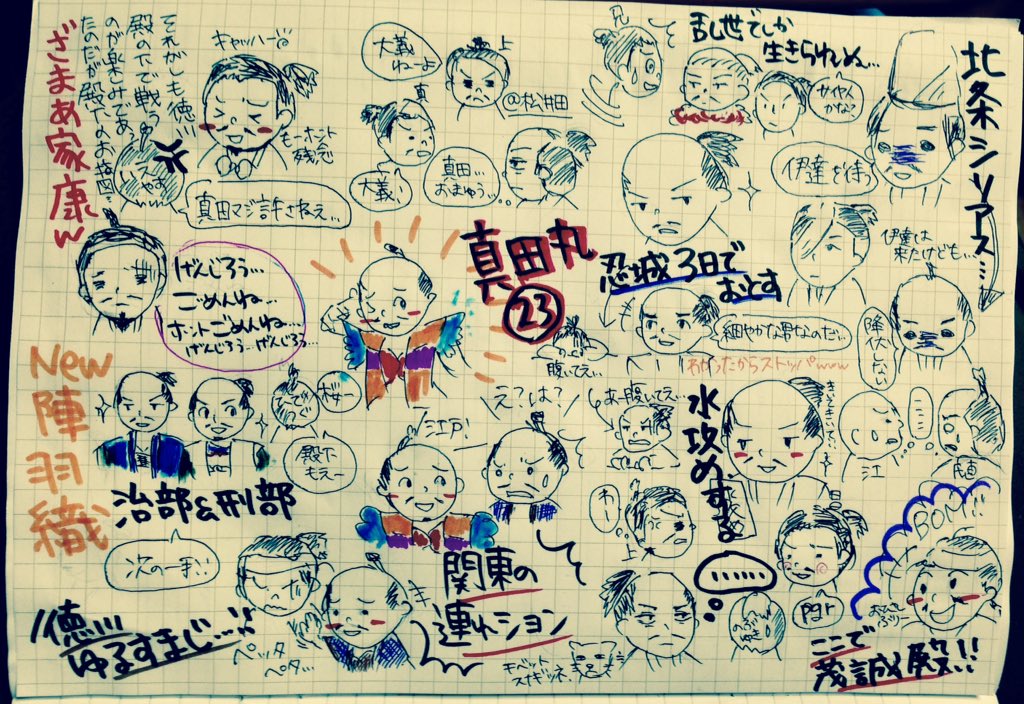 真田丸
㉓
それがしも徳川
殿の下で戦うゆ
のが楽しみであ
ざまあ家康ｗ
キャッハー
もーホント
残念
大義
ねーよ
上
@松井田
真
大義！
真田…
おまゆう…
真田マジ許さねえ…
兄
乱世でしか
生きられぬ…
せやん
かな？
伊達を待つ
北条シリアス…
伊達は
来たけども…
降伏しない
忍城3日で
おとす
細やかな男なのだ…
わかったからストッパwww
腹いてえ…
げんじろう…
ごめんね…
ホントごめんね…
げんじろう…げんじろう…
New
陣
羽
織
治部&刑部
殿下
もえー
え？は？
江戸！
あー腹いてえ…
水攻めする
江
氏直
わー
上
次の一手！！
徳川
ゆるすまじ…!!
ペッタ
ペタ…
関東の
連れション
チベット
スナギツネ
………
pgr
BOM!!
おひさし
ぶりー
ここで
茂誠殿!!